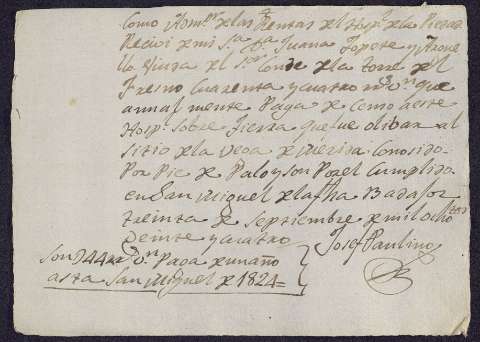 Como Adm.or de las Rentas del Hosp.l de la Piedad
Recivi de mi S.ra D.a Juana Topete y Argue
llo Viuda del S.or Conde de la Torre del
Fresno Cuarenta y cuatro r.s v.n que
annalmente Paga de Censo a este
Hosp.l sobre Tierra que fue olibar al
sitio de la Vega de Merida Conosido
Por Pie de Palo y son Por el Cumplido
en San Miguel de la fha Badajoz
treinta de Septiembre de mil ocho tos
Veinte y cuatro
Josef Paulino
Son 44 r.s v.n Paga de un año
asta San Miguel de 1824=